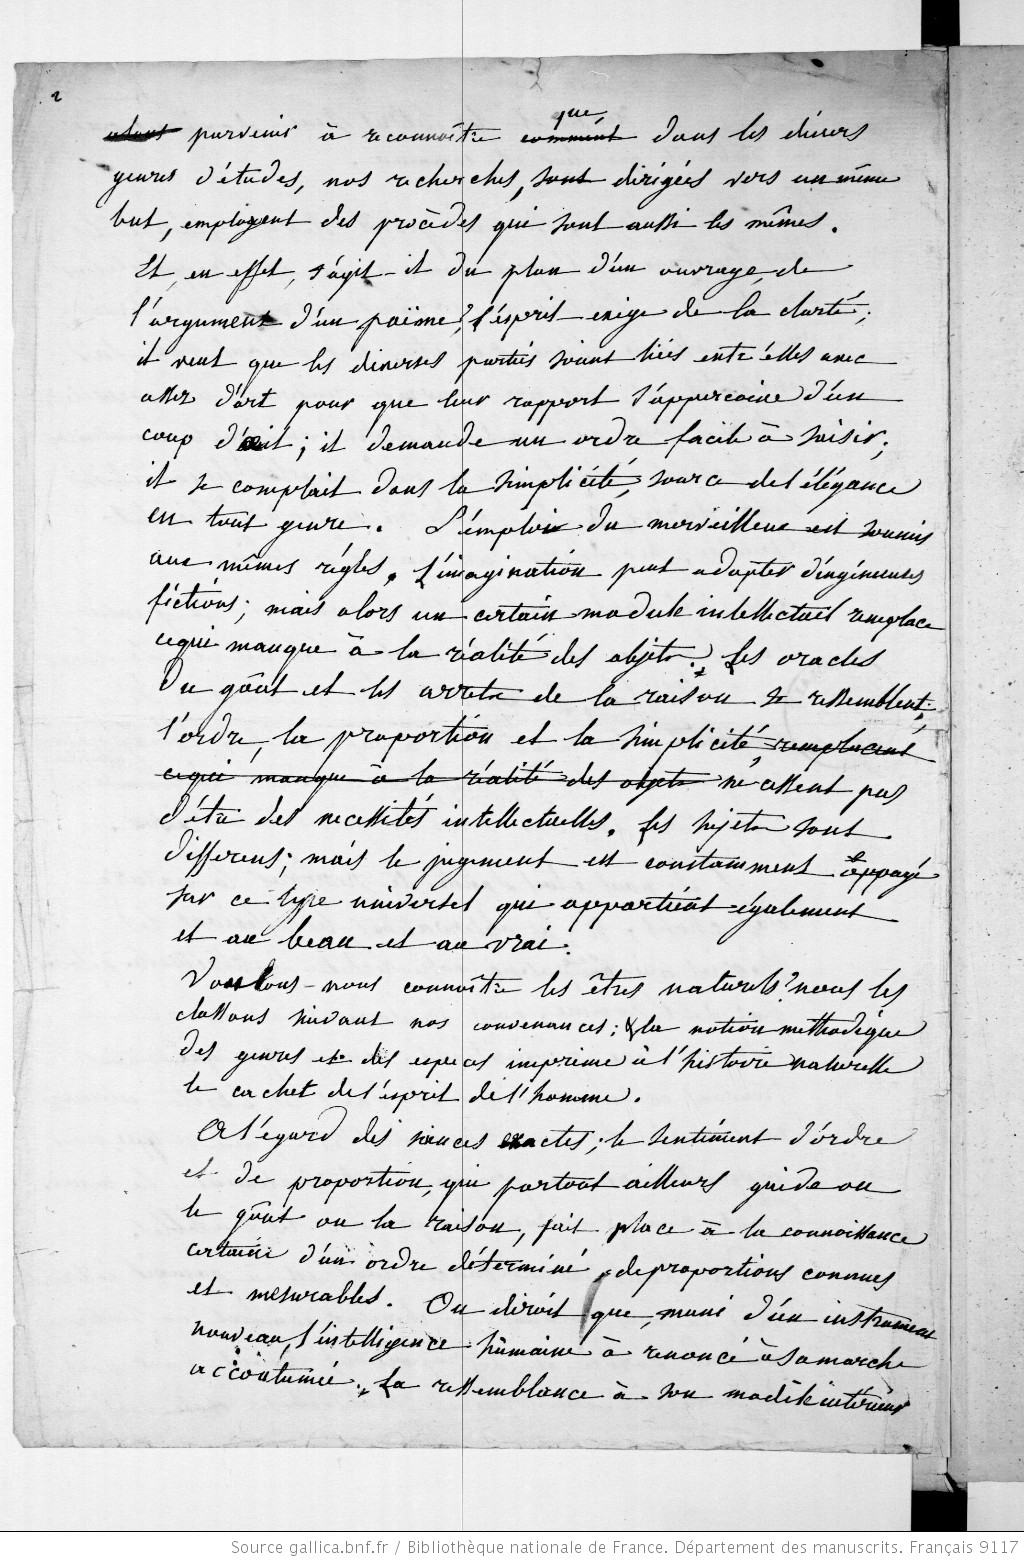 2
parvenir à reconnoître que comment dans les divers
genres d'études, nos recherches, sont dirigées vers un même
but, employent des procèdes qui sont aussi les mêmes.
Et, en effet, s'agit-il du plan d'un ouvrage, de
l'argument d'un poëme, l'esprit exige de la clarté;
il veut que les diverses parties soient liées entr'elles avec
assez d'art pour que leur rapport s'apperçoive d'un
coup d'œil; il demande un ordre facile à saisir;
il se complait dans la simplicité, source de l'élégance
en tout genre. L'emploi du merveilleux est soumis
aux mêmes régles. L'imagination peut adopter d'ingénieuses
fictions; mais alors un certain module intellectuel remplace
ce qui manque à la réalité des objets. Les oracles
du goût et les arrets de la raison se ressemblent:
l'ordre, la proportion et la simplicité, remplacent
ce qui manque à la réalité des objets ne cessent pas
d'étre des necessités intellectuelles. Les sujets sont
differens; mais le jugement est constamment appuyé
sur ce type universel qui appartient également
et au beau et au vrai.
Voulons-nous connoître les êtres naturels? nous les
classons suivant nos convenances; la notion methodique
des genres et des especes imprime à l'histoire naturelle
le cachet de l'esprit de l'homme.
A l'égard des siences exactes; le sentiment d'ordre
et de proportion, qui partout ailleurs guide ou
le goût ou la raison, fait place à la connoissance
certaine d'un ordre déterminé, de proportions connues
et mesurables. On diroit que, muni d'un instrument
nouveau, l'intelligence humaine à renoncé à sa marche
accoutumée. La ressemblance à son modèle intérieur
Source gallica.bnf.fr / Bibliothèque nationale de France. Département des manuscrits. Français 9117